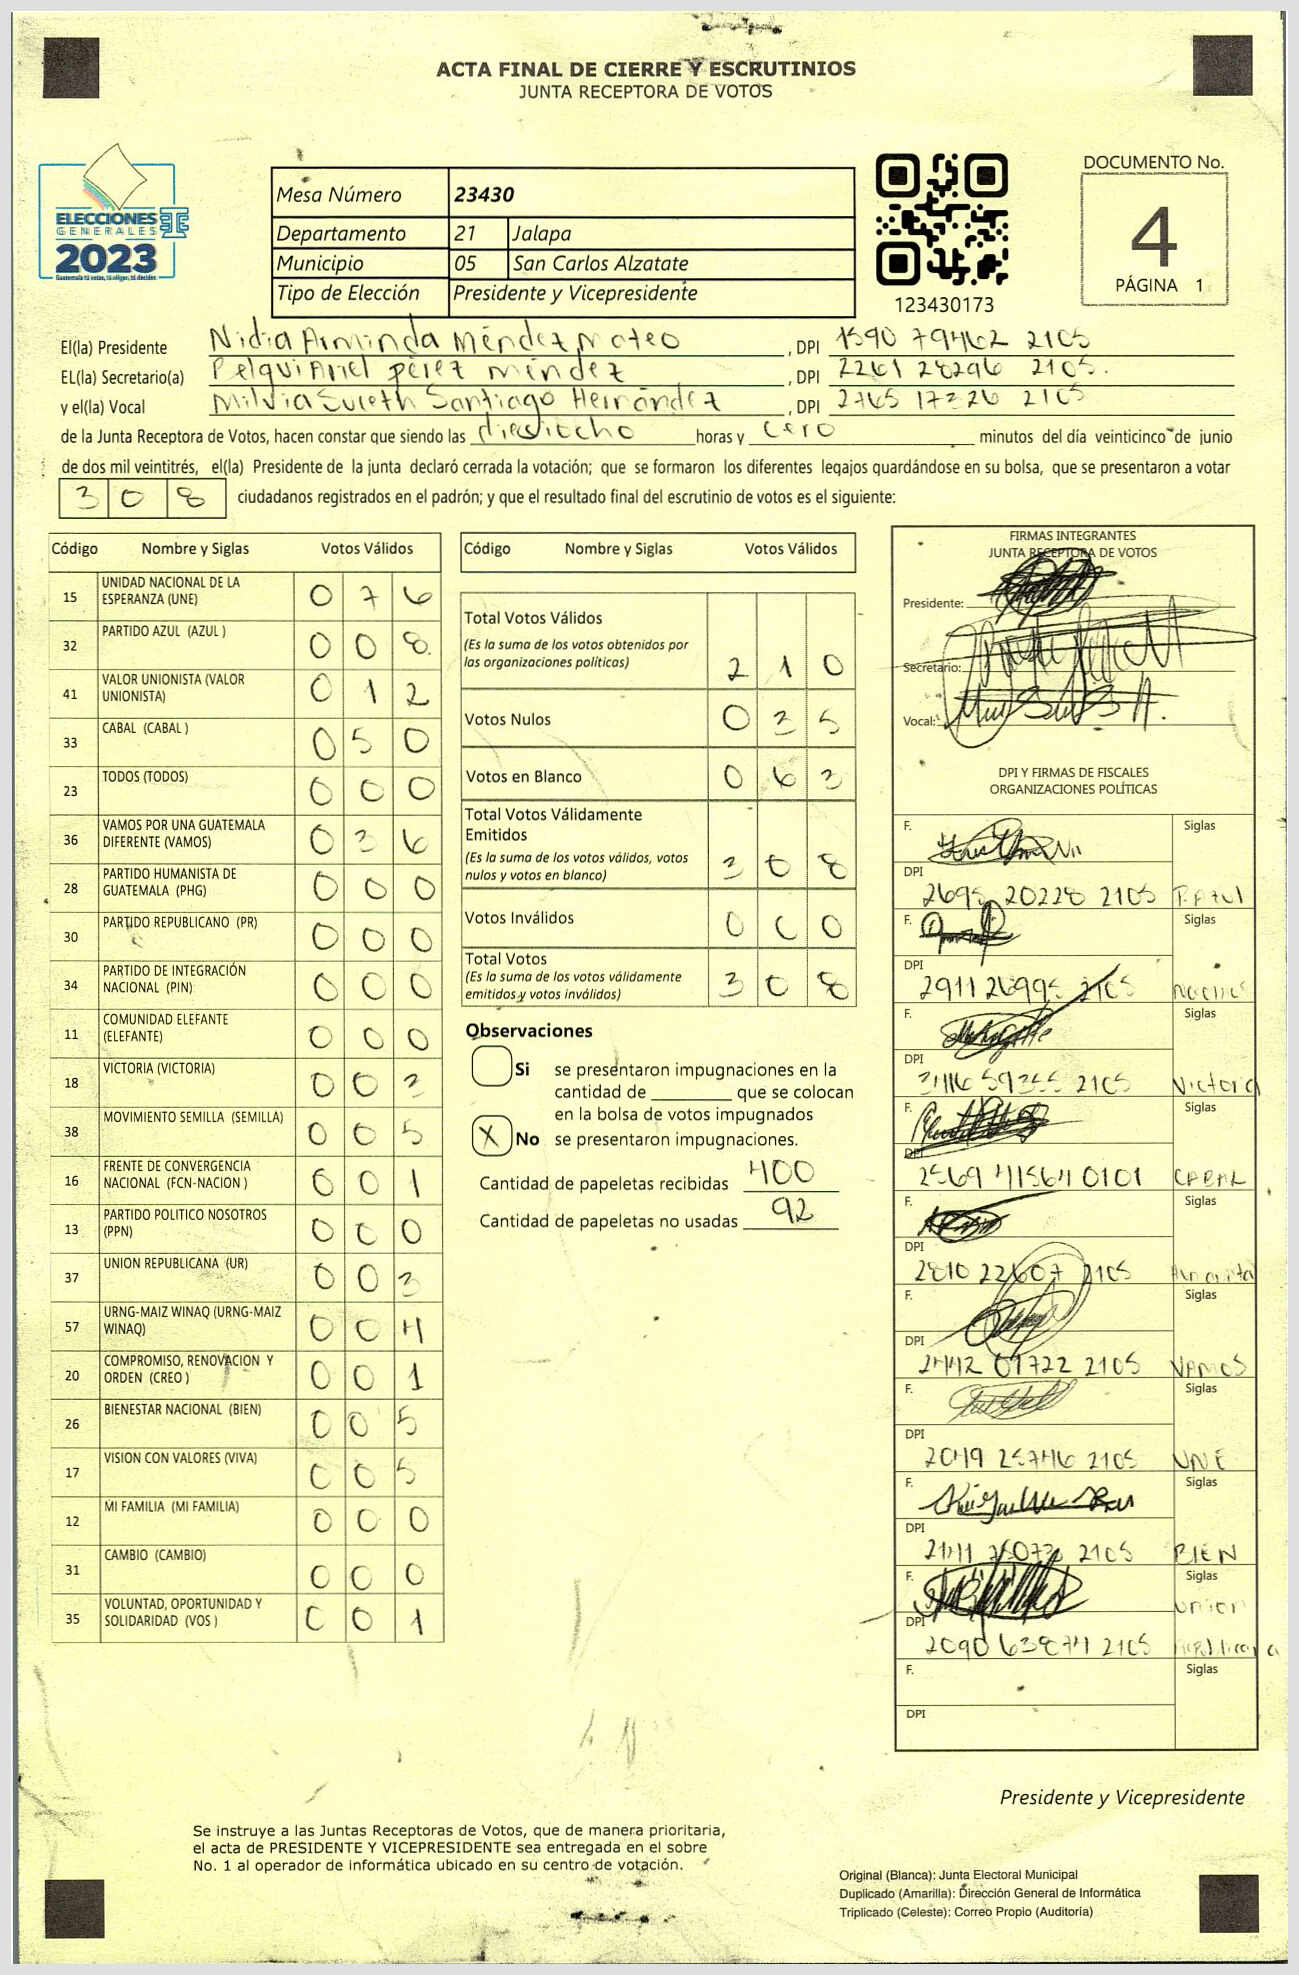 ACTA FINAL DE CIERRE Y ESCRUTINIOS
JUNTA RECEPTORA DE VOTOS
ELECCIONES
GENERALES
2023
Guatemala tú votas, tú eliges, tú decides
Mesa Número 23430
Departamento 21 Jalapa
Municipio 05 San Carlos Alzatate
Tipo de Elección Presidente y Vicepresidente
123430173
DOCUMENTO No.
4
PÁGINA 1
El(la) Presidente Nidia Arminda Méndez Mateo , DPI 1590 79462 2105
EL(la) Secretario(a) Pelqui Ariel pérez méndez , DPI 2261 28296 2105.
y el(la) Vocal Milvia Sureth Santiago Hernández , DPI 2765 17226 2105
de la Junta Receptora de Votos, hacen constar que siendo las dieciocho horas y cero minutos del día veinticinco de junio
de dos mil veintitrés, el(la) Presidente de la junta declaró cerrada la votación; que se formaron los diferentes legajos guardándose en su bolsa, que se presentaron a votar
308 ciudadanos registrados en el padrón; y que el resultado final del escrutinio de votos es el siguiente:
Código Nombre y Siglas Votos Válidos
15 UNIDAD NACIONAL DE LA ESPERANZA (UNE) 0 7 6
32 PARTIDO AZUL (AZUL ) 0 0 8
41 VALOR UNIONISTA (VALOR UNIONISTA) 0 1 2
33 CABAL (CABAL ) 0 5 0
23 TODOS (TODOS) 0 0 0
36 VAMOS POR UNA GUATEMALA DIFERENTE (VAMOS) 0 3 6
28 PARTIDO HUMANISTA DE GUATEMALA (PHG) 0 0 0
30 PARTIDO REPUBLICANO (PR) 0 0 0
34 PARTIDO DE INTEGRACIÓN NACIONAL (PIN) 0 0 0
11 COMUNIDAD ELEFANTE (ELEFANTE) 0 0 0
18 VICTORIA (VICTORIA) 0 0 3
38 MOVIMIENTO SEMILLA (SEMILLA) 0 0 5
16 FRENTE DE CONVERGENCIA NACIONAL (FCN-NACION ) 0 0 1
13 PARTIDO POLITICO NOSOTROS (PPN) 0 0 0
37 UNION REPUBLICANA (UR) 0 0 3
57 URNG-MAIZ WINAQ (URNG-MAIZ WINAQ) 0 0 4
20 COMPROMISO, RENOVACION Y ORDEN (CREO ) 0 0 1
26 BIENESTAR NACIONAL (BIEN) 0 0 5
17 VISION CON VALORES (VIVA) 0 0 5
12 MI FAMILIA (MI FAMILIA) 0 0 0
31 CAMBIO (CAMBIO) 0 0 0
35 VOLUNTAD, OPORTUNIDAD Y SOLIDARIDAD (VOS ) 0 0 1
Código Nombre y Siglas Votos Válidos
Total Votos Válidos
(Es la suma de los votos obtenidos por
las organizaciones políticas) 2 1 0
Votos Nulos 0 3 5
Votos en Blanco 0 6 3
Total Votos Válidamente
Emitidos
(Es la suma de los votos válidos, votos
nulos y votos en blanco) 3 0 8
Votos Inválidos 0 0 0
Total Votos
(Es la suma de los votos válidamente
emitidos y votos inválidos) 3 0 8
Observaciones
Si se presentaron impugnaciones en la
cantidad de ________ que se colocan
en la bolsa de votos impugnados
X No se presentaron impugnaciones.
Cantidad de papeletas recibidas 400
Cantidad de papeletas no usadas 92
FIRMAS INTEGRANTES
JUNTA RECEPTORA DE VOTOS
Presidente:
Secretario:
Vocal:
DPI Y FIRMAS DE FISCALES
ORGANIZACIONES POLÍTICAS
F. Siglas
DPI 2695 20228 2105 P.Azul
F. Siglas
DPI 2911 26995 2105
F. Siglas
DPI 3116 59355 2105 Victoria
F. Siglas
DPI 2569 41564 0101 CABAL
F. Siglas
DPI 2810 22607 2105
F. Siglas
DPI 2442 01722 2105 VAMOS
F. Siglas
DPI 2049 25746 2105 UNE
F. Siglas
DPI 2105 BIEN
F. Siglas
DPI 2090 63874 2105 Union Republicana
F. Siglas
DPI
Presidente y Vicepresidente
Se instruye a las Juntas Receptoras de Votos, que de manera prioritaria,
el acta de PRESIDENTE Y VICEPRESIDENTE sea entregada en el sobre
No. 1 al operador de informática ubicado en su centro de votación.
Original (Blanca): Junta Electoral Municipal
Duplicado (Amarilla): Dirección General de Informática
Triplicado (Celeste): Correo Propio (Auditoria)